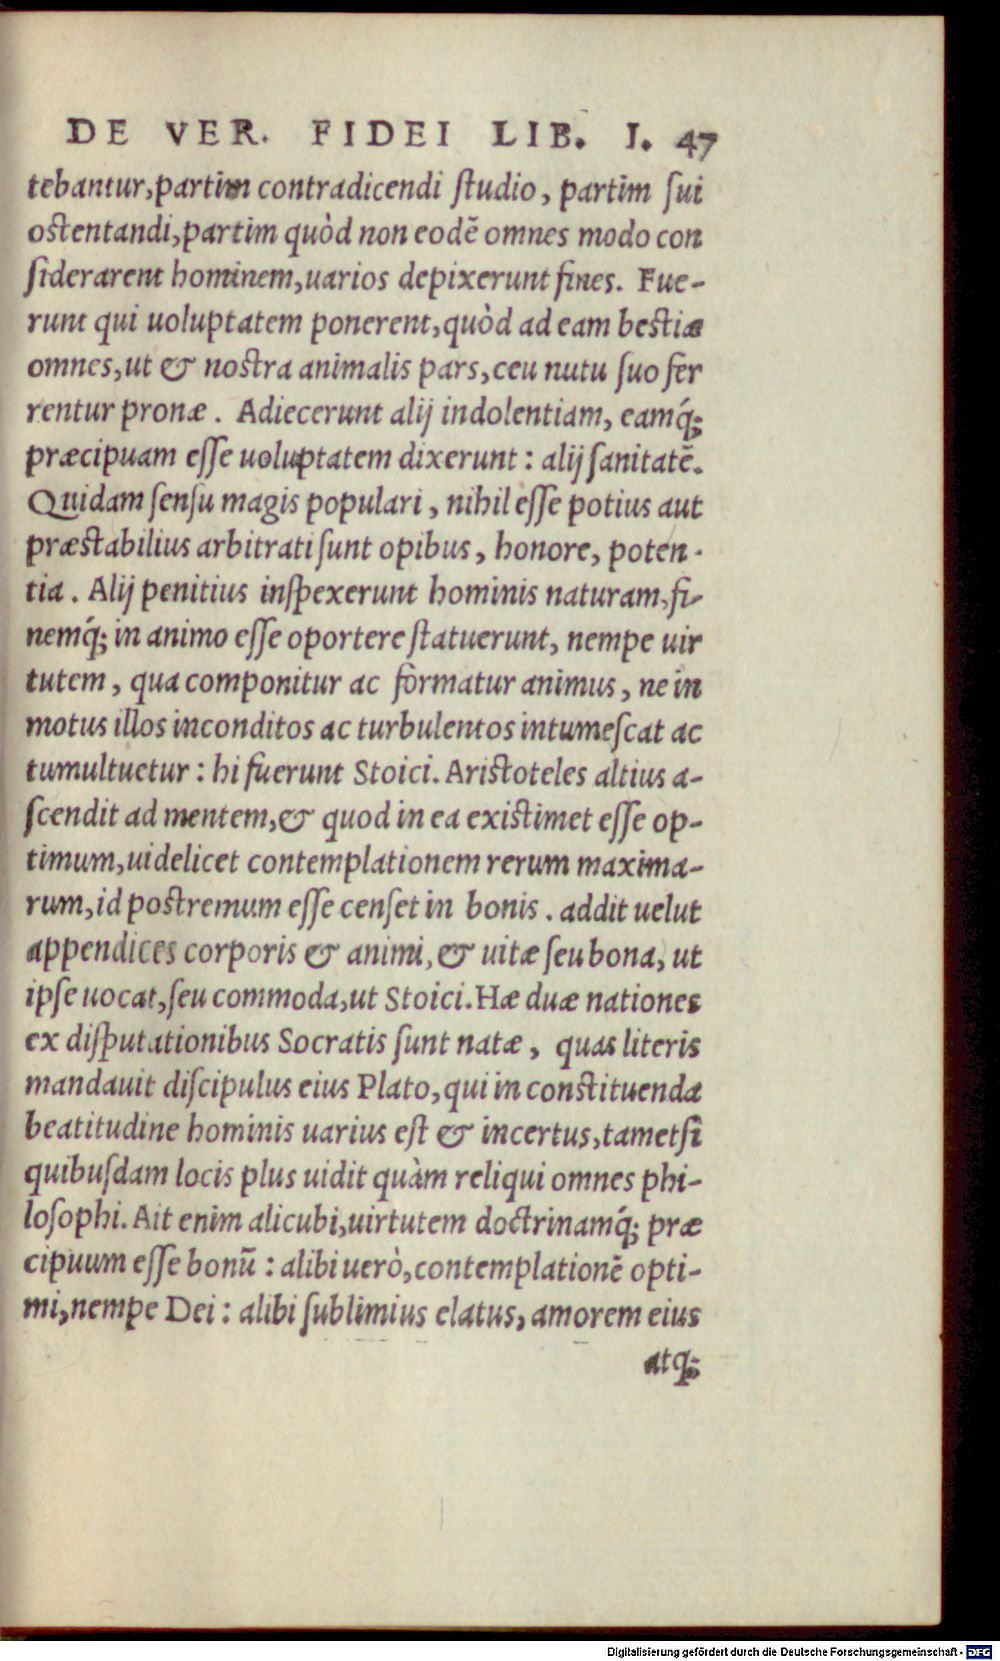 DE VER. FIDEI LIB. I. 47
tebantur, partim contradicendi ſtudio, partim ſui
oſtentandi, partim quòd non eodē omnes modo con
ſiderarent hominem, uarios depixerunt fines. Fue-
runt qui uoluptatem ponerent, quòd ad eam beſtiæ
omnes, ut & noſtra animalis pars, ceu nutu ſuo fer
rentur pronæ. Adiecerunt alij indolentiam, eamq́;
præcipuam eſſe uoluptatem dixerunt: alij ſanitatē.
Quidam ſenſu magis populari, nihil eſſe potius aut
præſtabilius arbitrati ſunt opibus, honore, poten-
tia. Alij penitius inſpexerunt hominis naturam, fi-
nemq́; in animo eſſe oportere ſtatuerunt, nempe uir
tutem, qua componitur ac formatur animus, ne in
motus illos inconditos ac turbulentos intumeſcat ac
tumultuetur: hi fuerunt Stoici. Ariſtoteles altius a-
ſcendit ad mentem, & quod in ea exiſtimet eſſe op-
timum, uidelicet contemplationem rerum maxima-
rum, id poſtremum eſſe cenſet in bonis. addit uelut
appendices corporis & animi, & uitæ ſeu bona, ut
ipſe uocat, ſeu commoda, ut Stoici. Hæ duæ nationes
ex diſputationibus Socratis ſunt natæ, quas literis
mandauit diſcipulus eius Plato, qui in conſtituenda
beatitudine hominis uarius eſt & incertus, tametſi
quibuſdam locis plus uidit quàm reliqui omnes phi-
loſophi. Ait enim alicubi, uirtutem doctrinamq́; præ
cipuum eſſe bonū: alibi uerò, contemplationē opti-
mi, nempe Dei: alibi ſublimius elatus, amorem eius
atq;
Digitalisierung gefördert durch die Deutsche Forschungsgemeinschaft - DFG